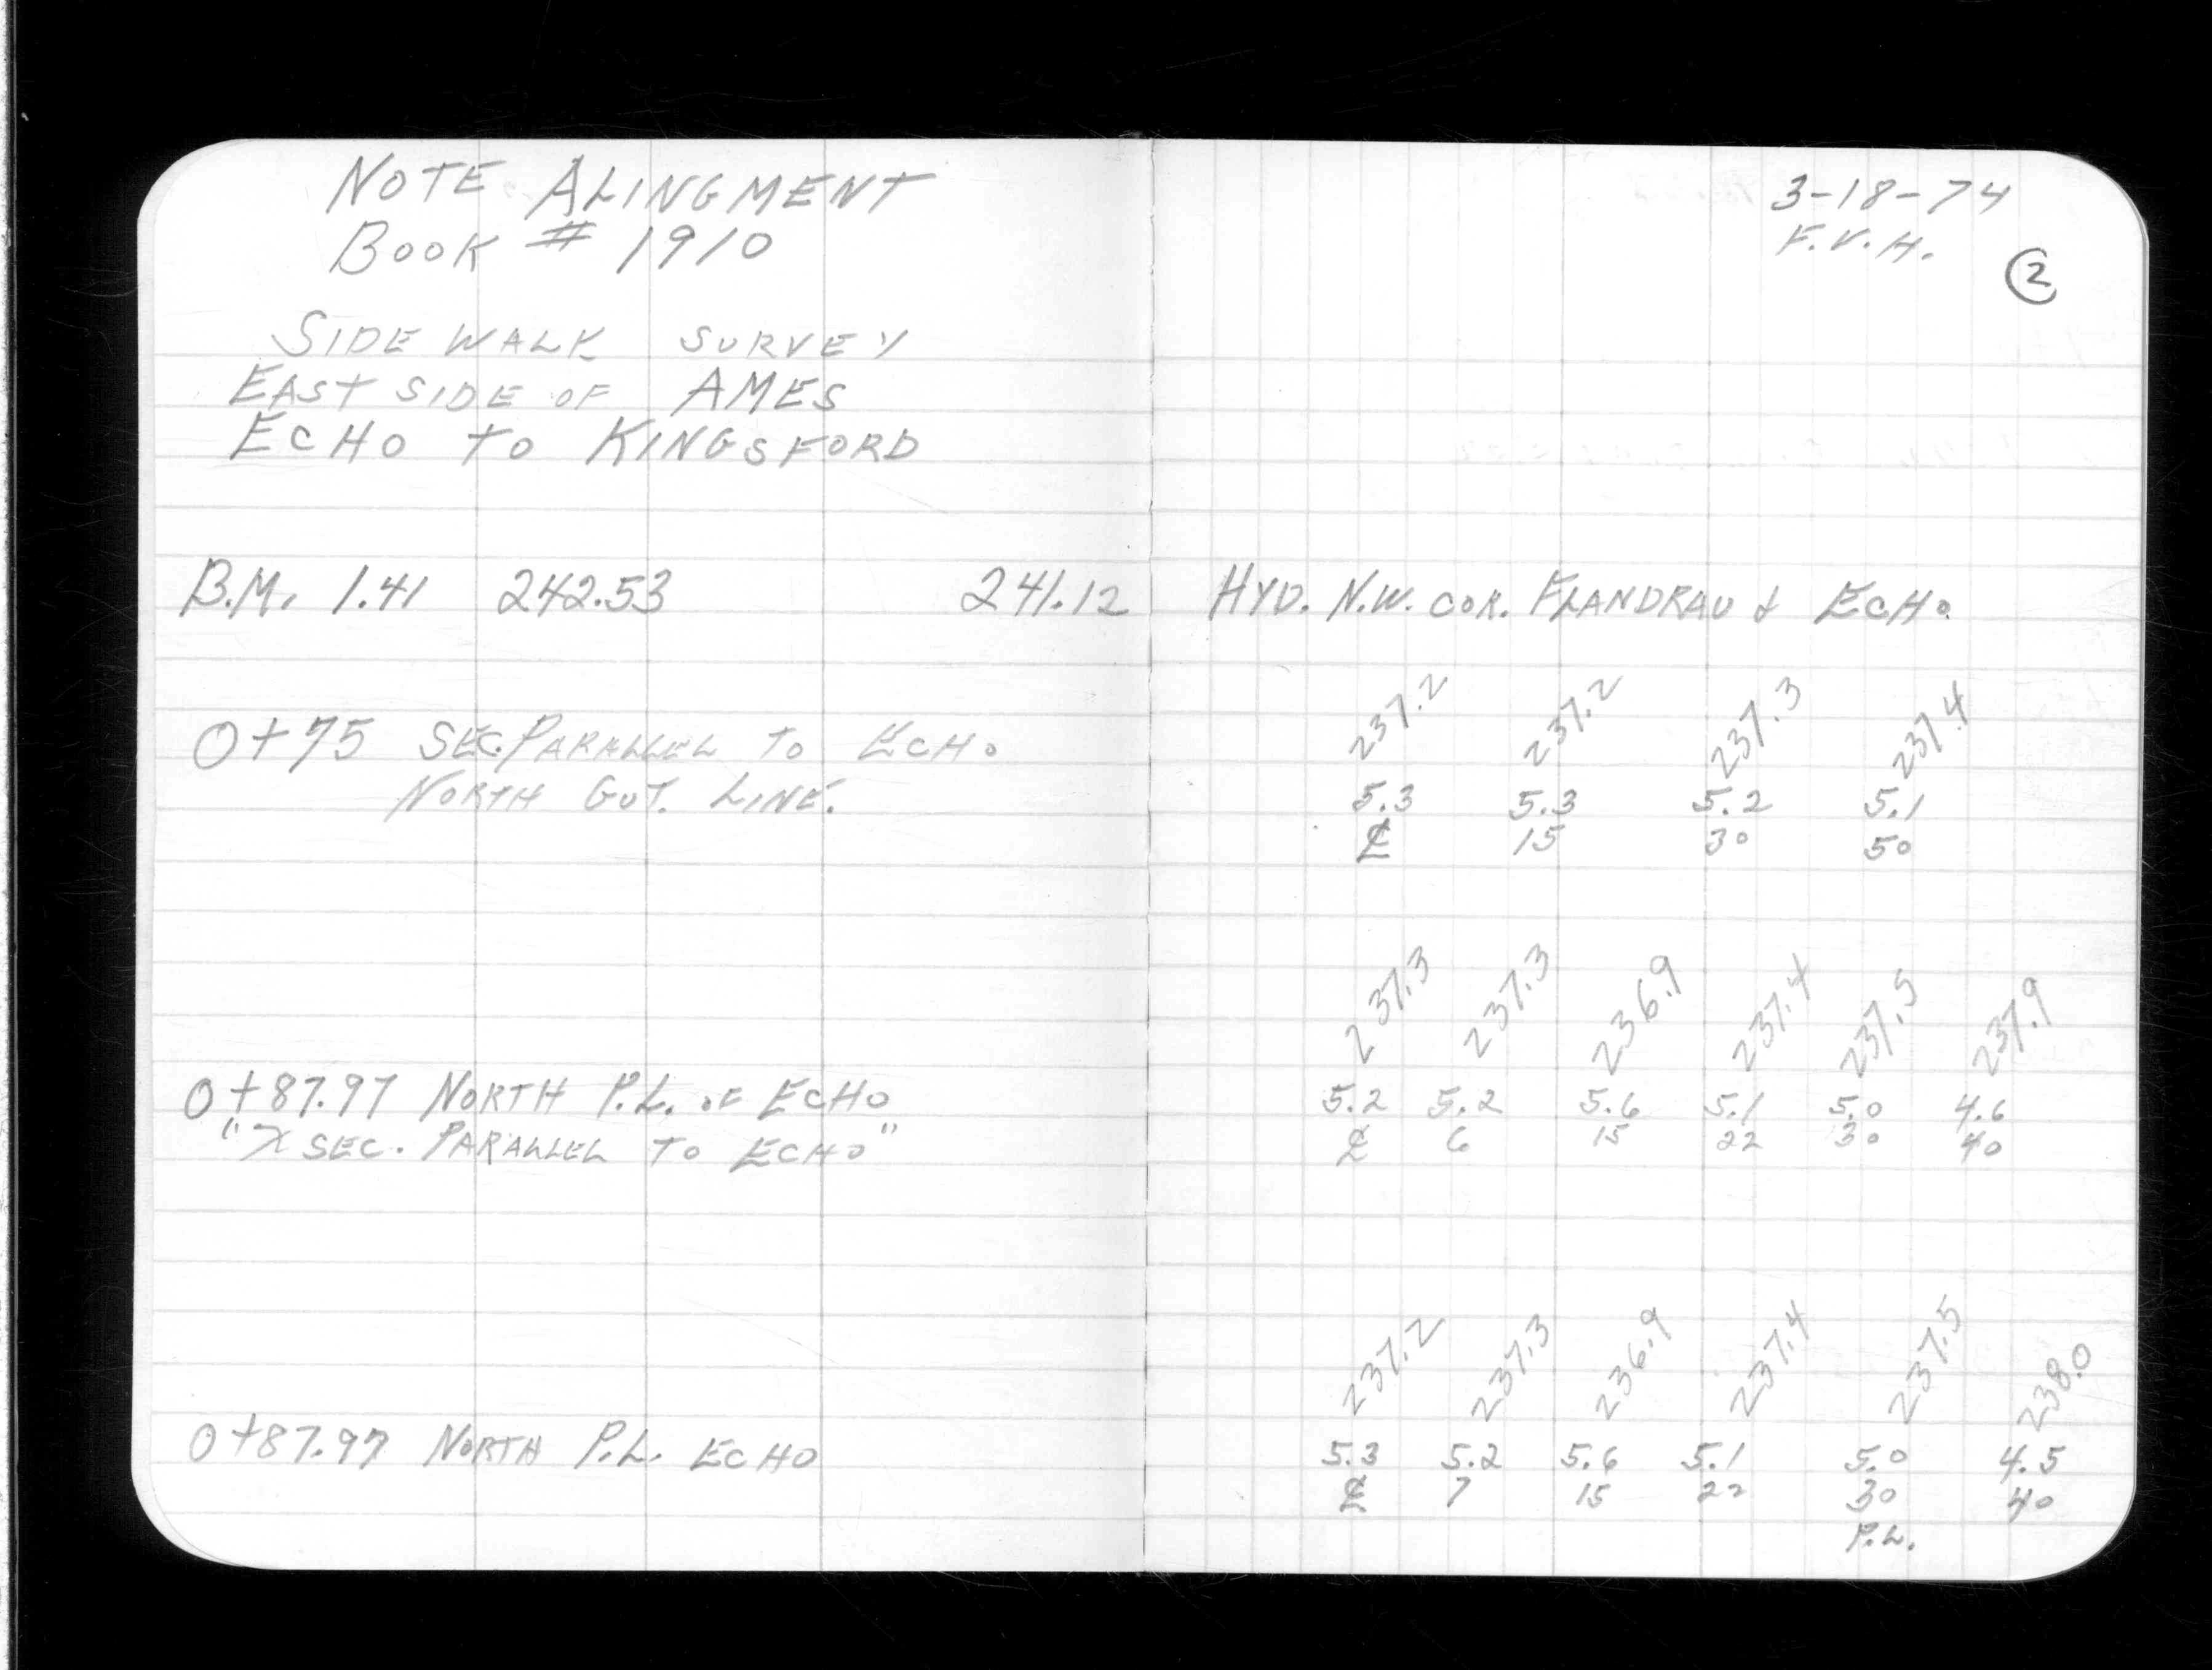 NOTE ALINGMENT
BOOK # 1910
SIDE WALK SURVEY
EAST SIDE OF AMES
ECHO TO KINGSFORD
B.M. 1.41 242.53 241.12
0+75 SEC. PARALLEL TO ECHO
NORTH GUT. LINE.
0+87.97 NORTH P.L. OF ECHO
"X SEC. PARALLEL TO ECHO"
0+87.97 NORTH P.L. ECHO
3-18-74
F.V.H.
2
HYD. N.W. COR. FLANDRAU & ECHO
237.2 237.2 237.3 237.4
5.3 5.3 5.2 5.1
℄ 15 30 50
237.3 237.3 236.9 237.4 237.5 237.9
5.2 5.2 5.6 5.1 5.0 4.6
℄ 6 15 22 30 40
237.2 237.3 236.9 237.4 237.5 238.0
5.3 5.2 5.6 5.1 5.0 4.5
℄ 7 15 22 30 40
P.L.